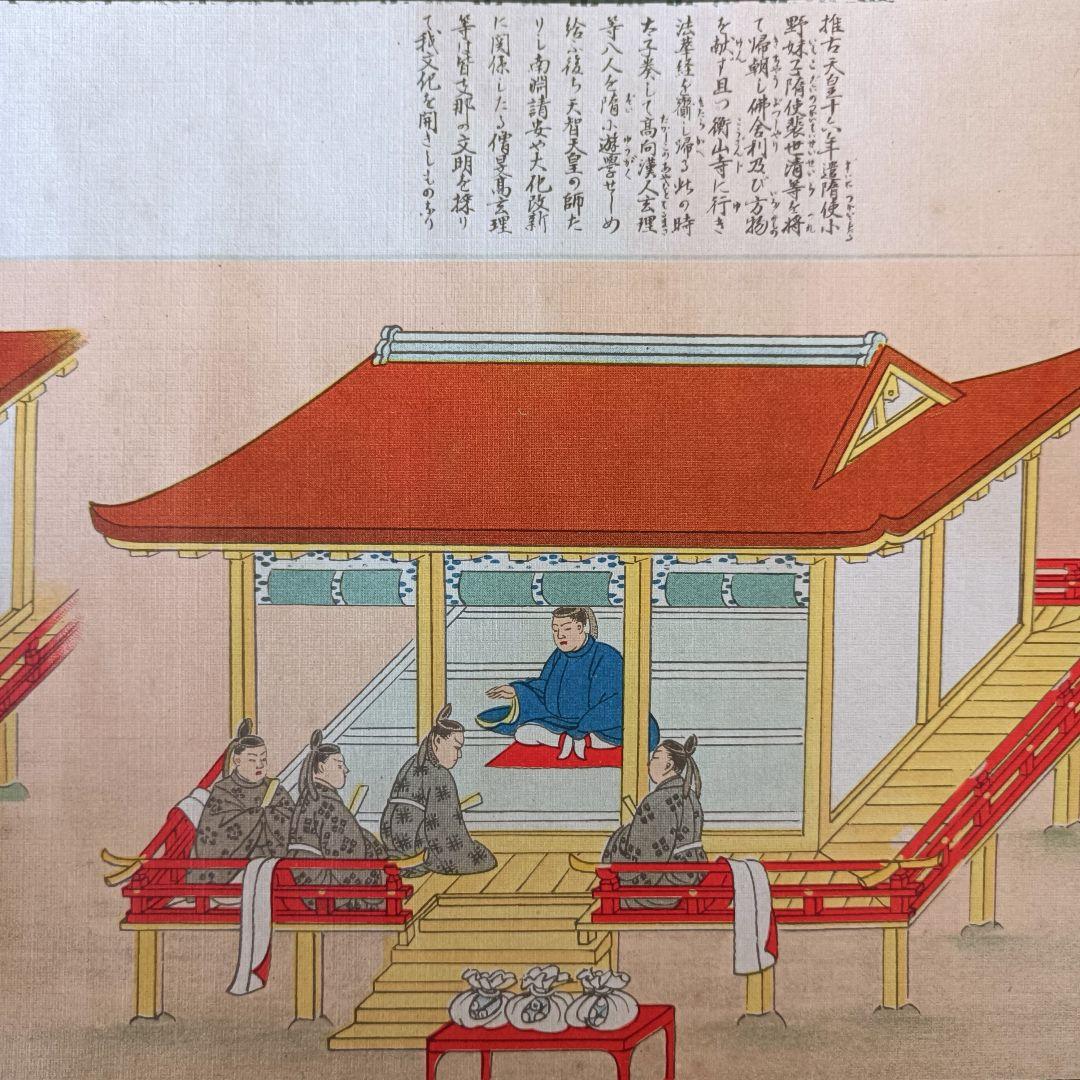 推古天皇十六年遣隋使小
野妹子隋使裴世清等を将
て帰朝し佛舎利及び方物
を献す且つ衡山寺に行き
法華経を齎し帰る此の時
太子奏して高向漢人玄理
等八人を隋に遊学せしめ
給ふ後ち天智天皇の師た
りし南淵請安や大化改新
に関係したる僧旻高玄理
等は皆支那の文明を採り
て我文化を開きしものなり